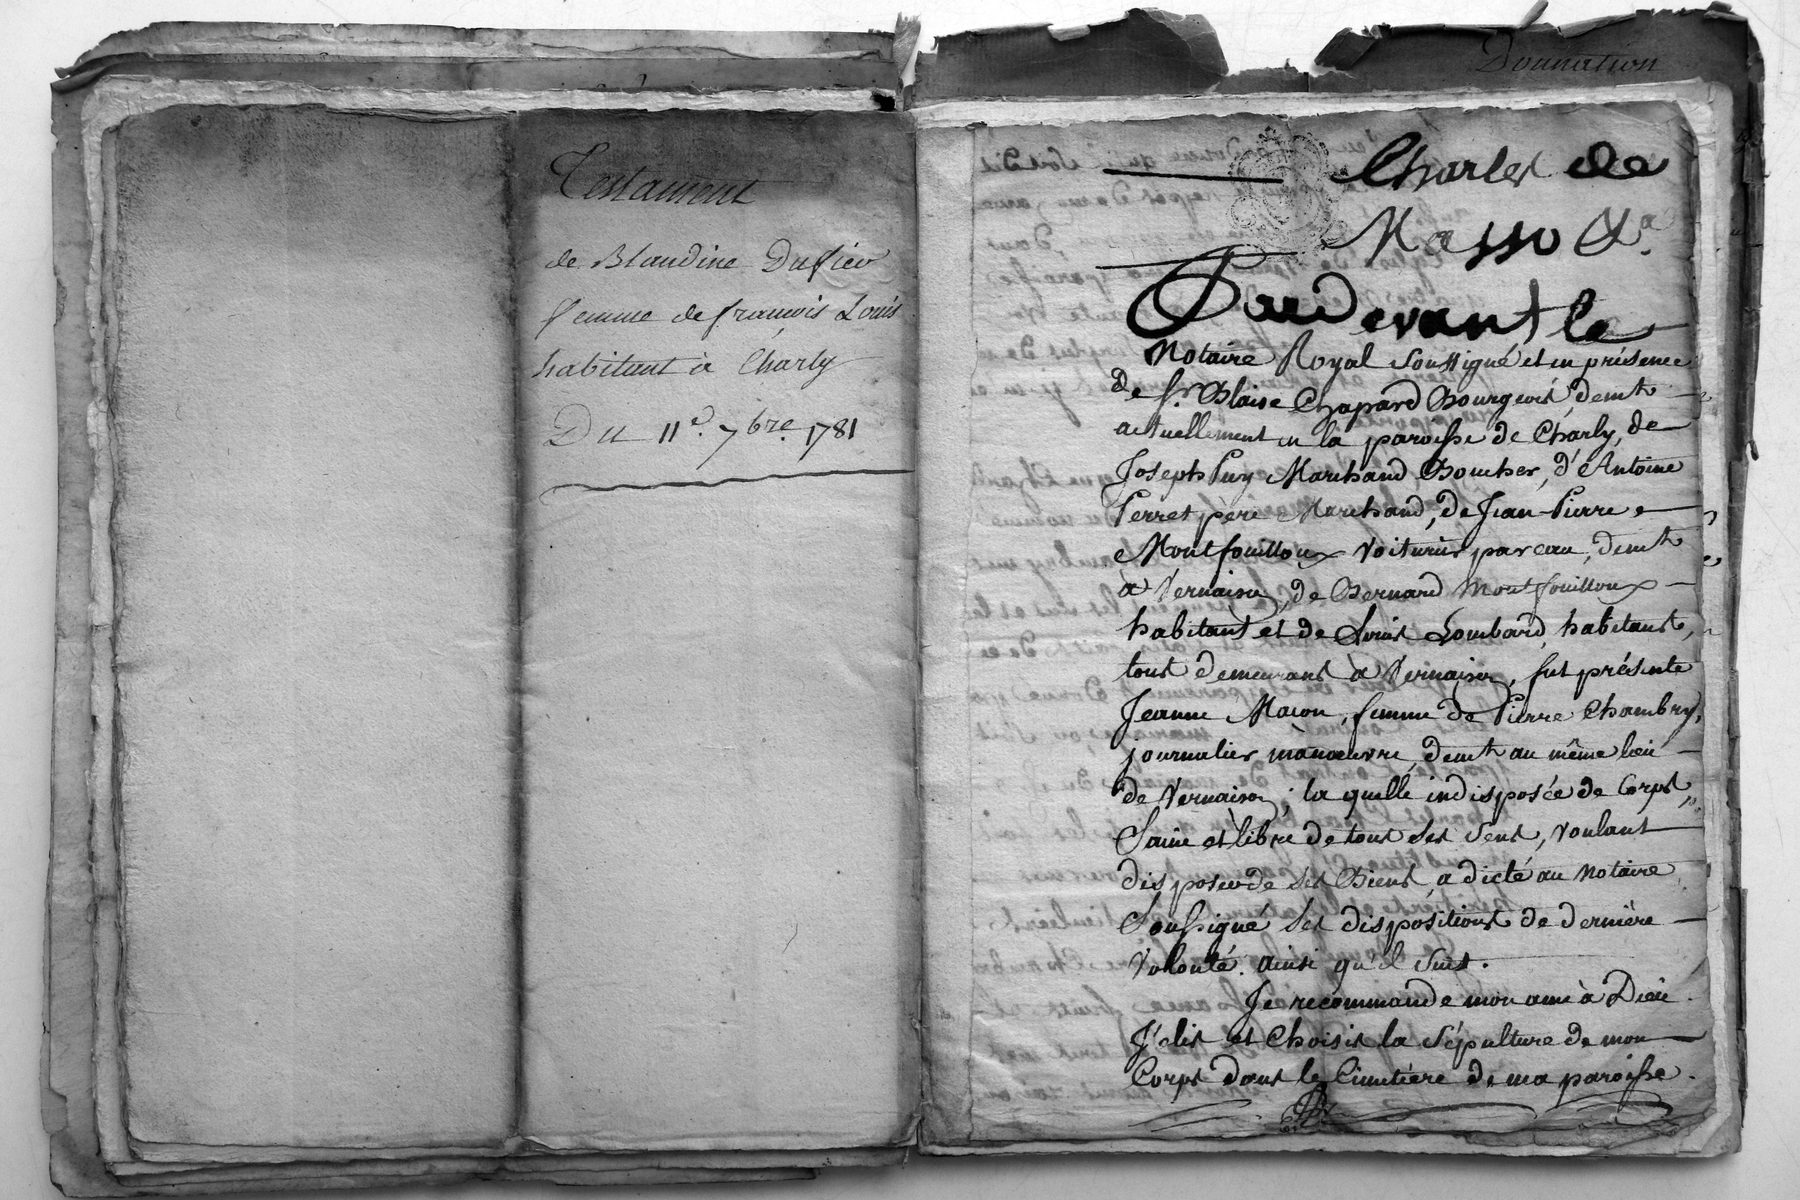 Testament
de Blandine Dufieu
femme de françois Louis
habitant à Charly
Du 11e. 7bre. 1781
Donnation
Charles de
Masso &a.
Pardevant le
Notaire Royal soussigné et en présence
de sr. Blaise Chapard Bourgeois, demt
actuellement en la paroisse de Charly, de
Joseph Puy Marchand Boucher, d'Antoine
Perret père Marchand, de Jean-Pierre
Montfouilloux voiturier par eau, demt
à Vernaison, de Bernard Montfouilloux
habitant et de Louis Lombard, habitant,
tous demeurans à Vernaison, fut présente
Jeanne Macon, femme de Pierre Chambry,
journalier manœuvre, demt au même lieu
de Vernaison; la quelle indisposée de Corps,
Saine et libre de tous ses sens, voulant
disposer de ses Biens, a dicté au Notaire
soussigné ses dispositions de dernière
volonté. ainsi qu'il suit.
Je recommande mon ame à Dieu.
J'élis et Choisis la sépulture de mon
Corps dans le Cimetière de ma paroisse.